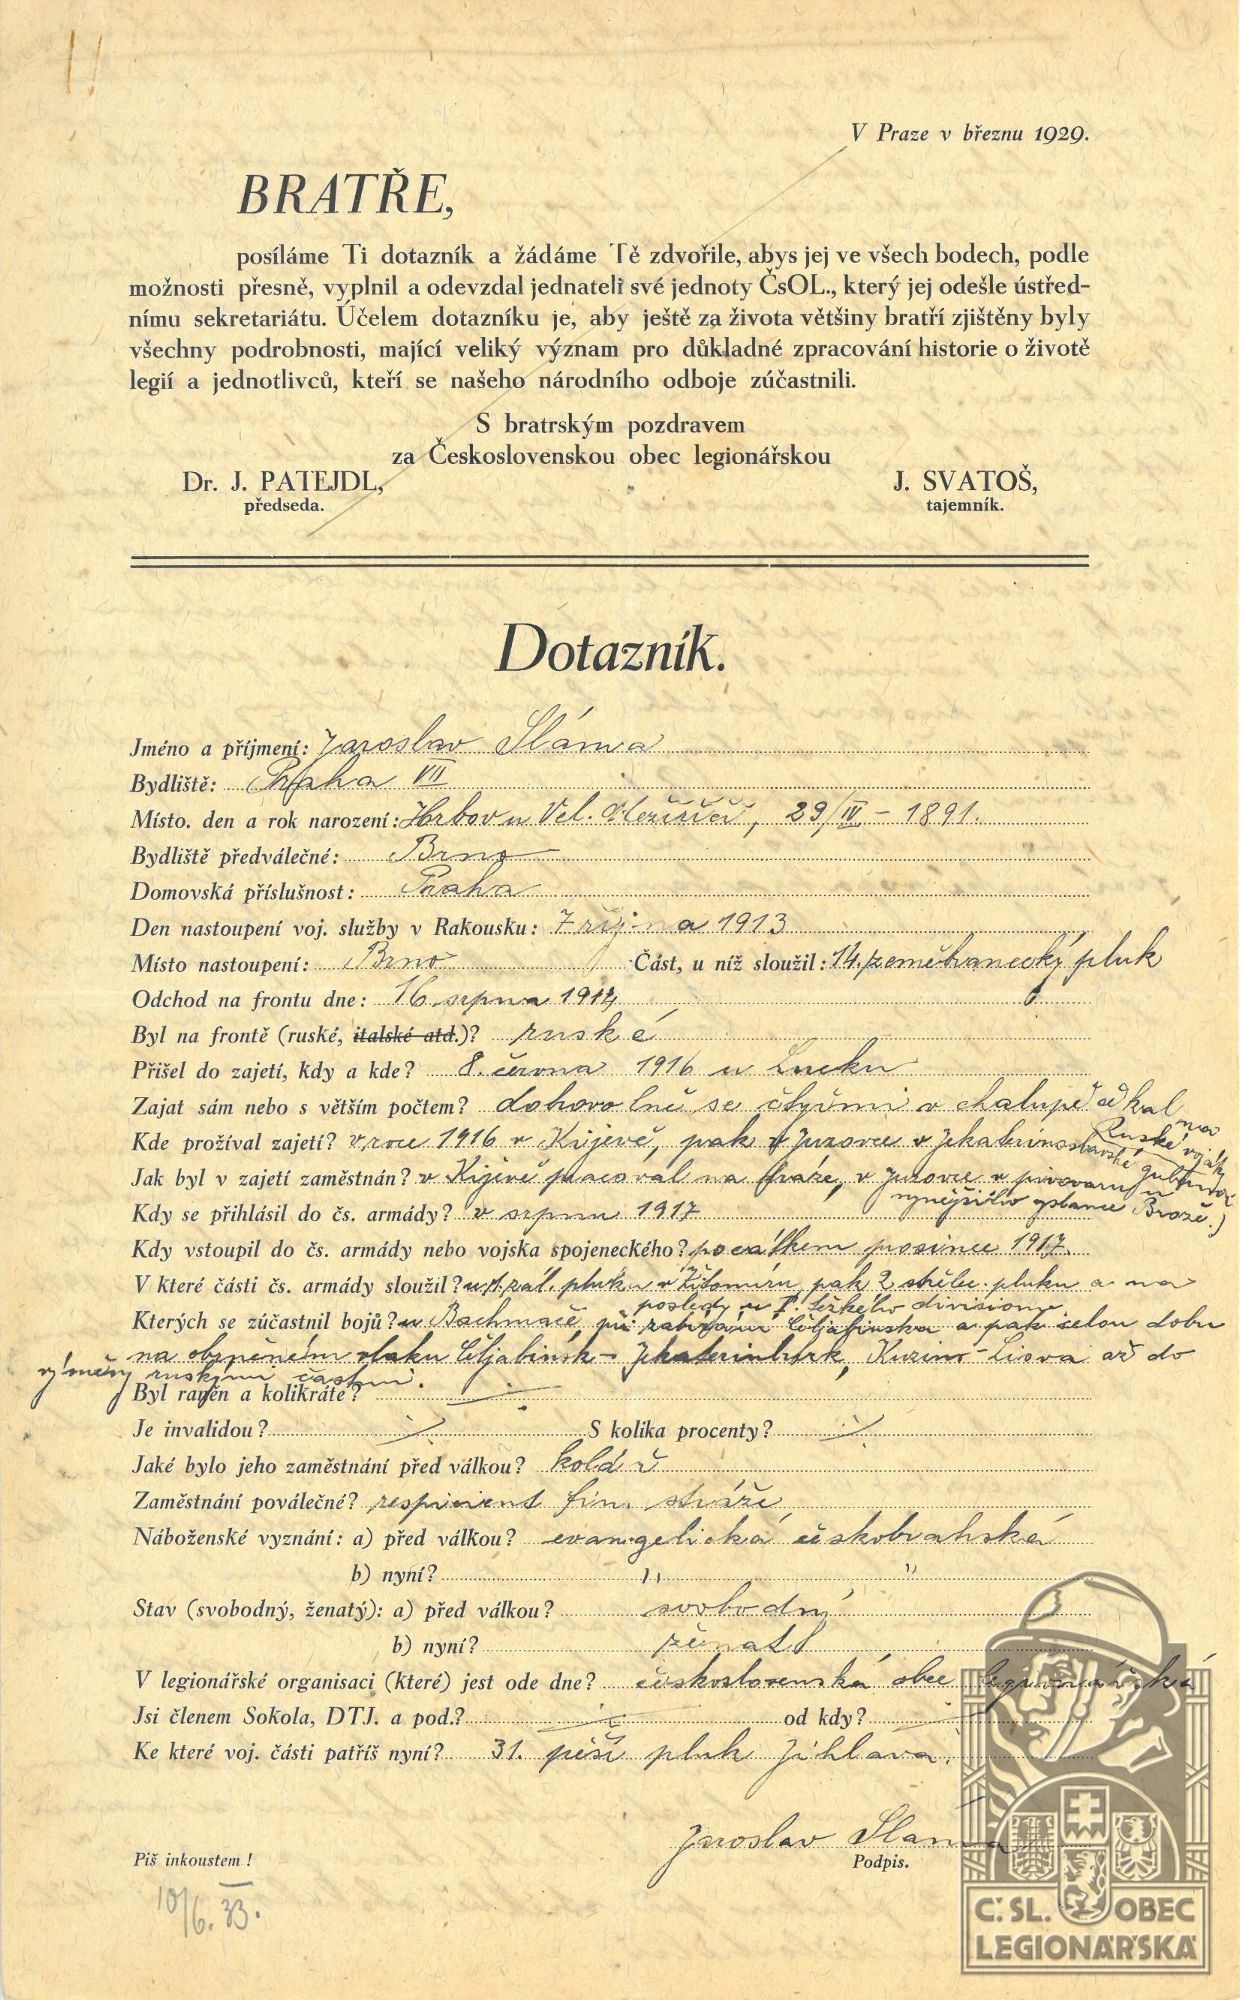 V Praze v březnu 1929.
BRATŘE,
posíláme Ti dotazník a žádáme Tě zdvořile, abys jej ve všech bodech, podle
možnosti přesně, vyplnil a odevzdal jednateli své jednoty ČsOL., který jej odešle ústřed-
nímu sekretariátu. Účelem dotazníku je, aby ještě za života většiny bratří zjištěny byly
všechny podrobnosti, mající veliký význam pro důkladné zpracování historie o životě
legií a jednotlivců, kteří se našeho národního odboje zúčastnili.
S bratrským pozdravem
za Československou obec legionářskou
Dr. J. PATEJDL, J. SVATOŠ,
předseda. tajemník.
Dotazník.
Jméno a příjmení: Jaroslav Sláma
Bydliště: Praha VII
Místo. den a rok narození: Hrbov u Vel. Meziříčí, 29/IV – 1891.
Bydliště předválečné: Brno
Domovská příslušnost: Praha
Den nastoupení voj. služby v Rakousku: 7 října 1913
Místo nastoupení: Brno Část, u níž sloužil: 14. zeměbranecký pluk
Odchod na frontu dne: 16 srpna 1914
Byl na frontě (ruské, italské atd.)? ruské
Přišel do zajetí, kdy a kde? 8. června 1916 u Lucku
Zajat sám nebo s větším počtem? dobrovolně se čtyřmi v chalupě čekal na
Ruské vojáky
Kde prožíval zajetí? v roce 1916 v Kijevě, pak v Juzovce v Jekaterinoslavské gubernii
Jak byl v zajetí zaměstnán? v Kijevě pracoval na dráze, v Juzovce v pivovaru u
nynějšího poslance Brože.)
Kdy se přihlásil do čs. armády? v srpnu 1917
Kdy vstoupil do čs. armády nebo vojska spojeneckého? počátkem prosince 1917.
V které části čs. armády sloužil? u 1. zál. pluku v Žitomíru, pak 2 střelec. pluku a na
posledy u I. těžkého divisionu.
Kterých se zúčastnil bojů? u Bachmače, při zabrání Čeljabinska a pak celou dobu
na obrněném vlaku Čeljabinsk – Jekaterinburk, Kuzino – Lisva až do
výměny ruskými částmi.
Byl raněn a kolikráte? ·/·
Je invalidou? ·/· S kolika procenty? ·/·
Jaké bylo jeho zaměstnání před válkou? kolář
Zaměstnání poválečné? respicient fin. stráže
Náboženské vyznání: a) před válkou? evangelická českobratrská
b) nyní? " "
Stav (svobodný, ženatý): a) před válkou? svobodný
b) nyní? ženatý
V legionářské organisaci (které) jest ode dne? československá obec legionářská
Jsi členem Sokola, DTJ. a pod.? ·/· od kdy? ·/·
Ke které voj. části patříš nyní? 31. pěší pluk Jihlava.
Jaroslav Sláma
Podpis.
Piš inkoustem!
10/6. 33.
Č. SL. OBEC
LEGIONÁŘSKÁ